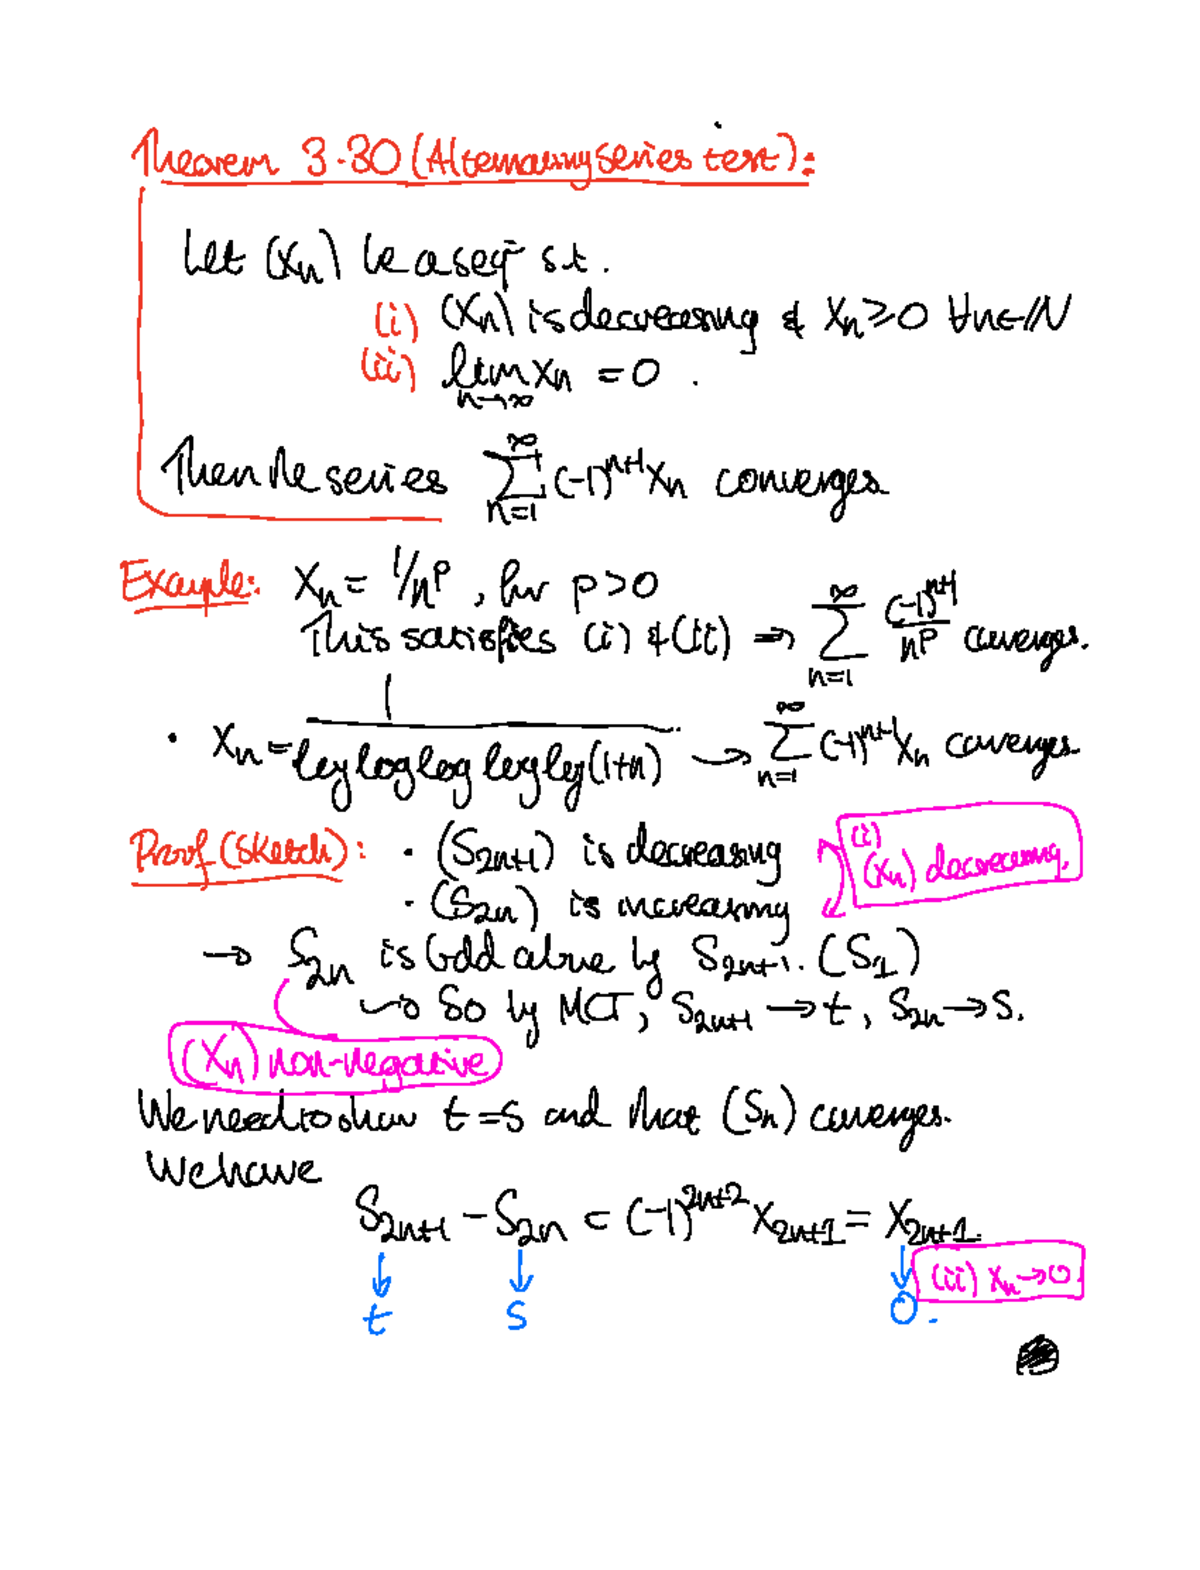 Theorem 3.30 (Alternating series test):
Let (xₙ) be a seqⁿ s.t.
(i) (xₙ) is decreasing & xₙ ≥ 0 ∀n∈ℕ
(ii) lim_{n→∞} xₙ = 0 .
Then the series ∑_{n=1}^{∞} (-1)^{n+1} xₙ converges
Example: xₙ = 1/n^p , for p > 0
This satisfies (i) & (ii) ⇒ ∑_{n=1}^{∞} (-1)^{n+1}/n^p converges.
• xₙ = 1/(log log log log log(1+n)) → ∑_{n=1}^{∞} (-1)^{n+1} xₙ converges.
Proof (sketch): • (S_{2n+1}) is decreasing
(i) (xₙ) decreasing.
• (S_{2n}) is increasing
→ S_{2n} is bdd above by S_{2n+1}. (S₁)
→ So by MCT, S_{2n+1} → t, S_{2n} → s.
(xₙ) non-negative
We need to show t = s and that (Sₙ) converges.
We have
S_{2n+1} - S_{2n} = (-1)^{2n+2} x_{2n+1} = x_{2n+1}.
↓ ↓ ↓ (ii) xₙ → 0.
t s 0.